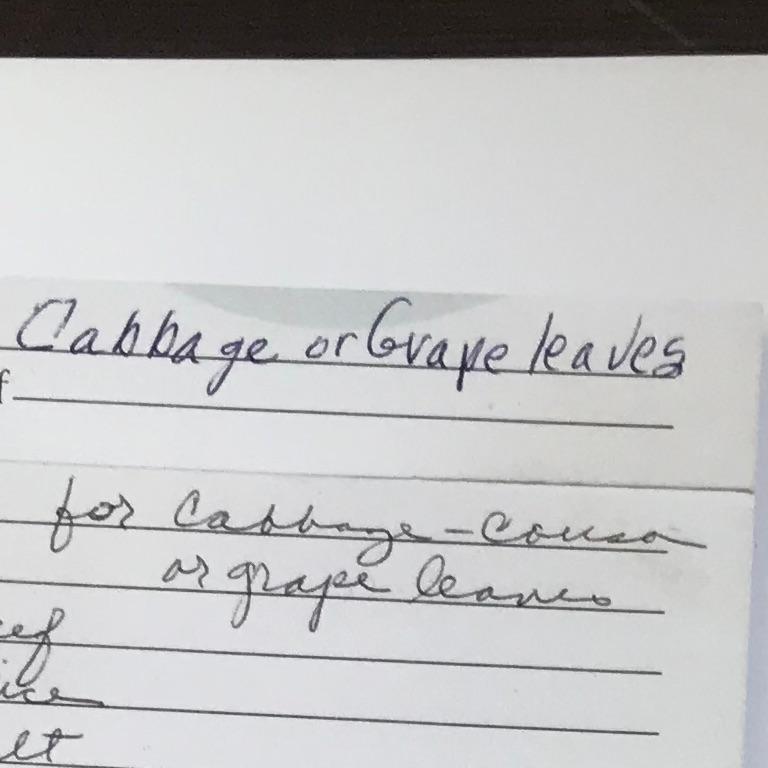 Cabbage or Grape leaves
f
for Cabbage - Cousa
or grape leaves
eef
ice
lt